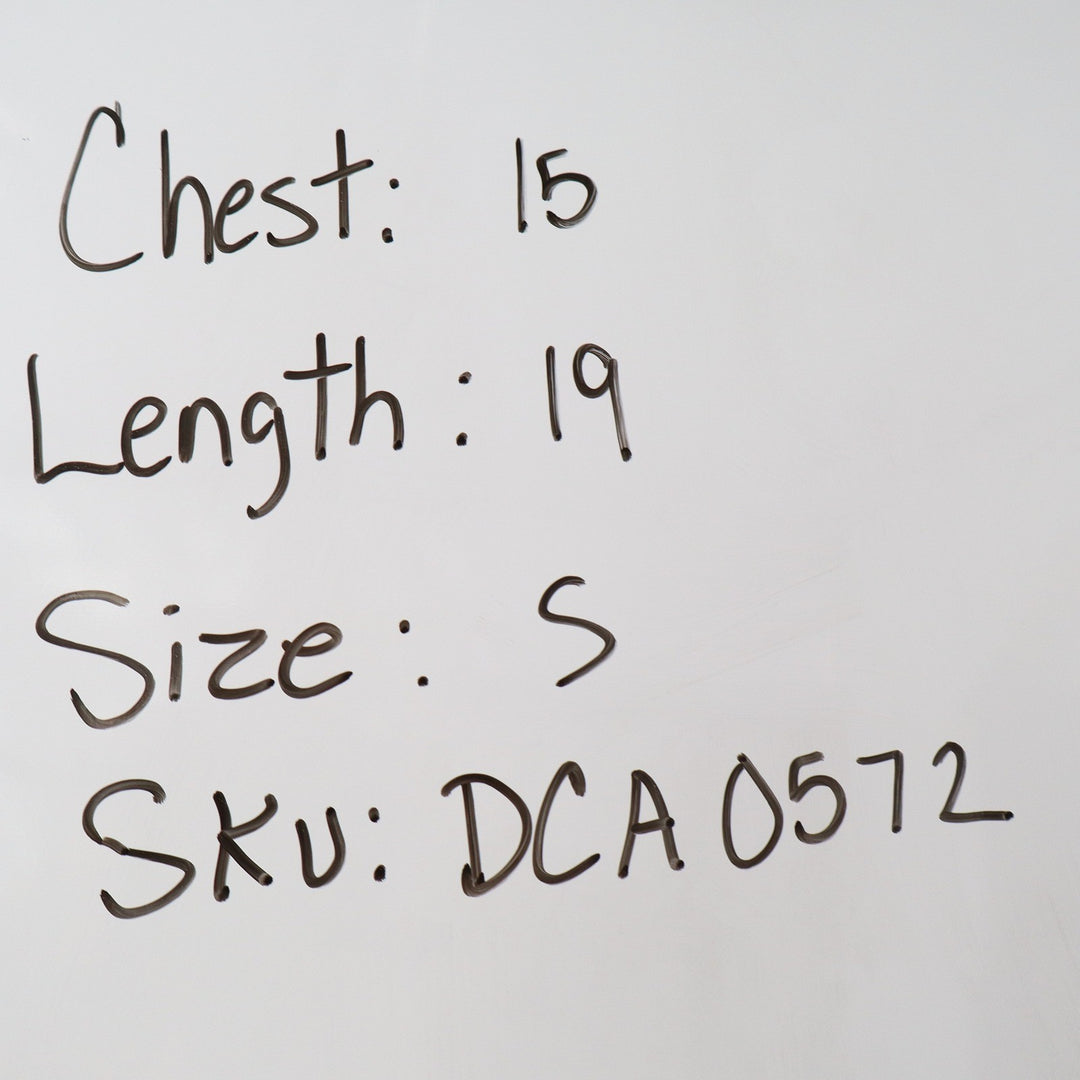 Chest: 15
Length: 19
Size: S
SKU: DCA0572